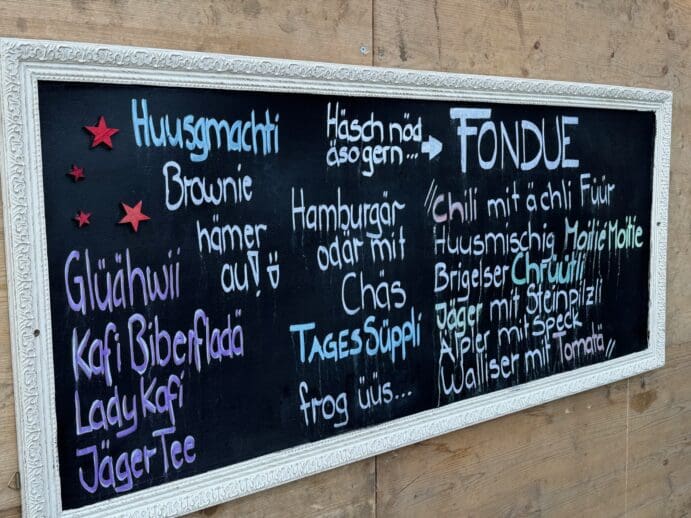 Huusgmachti
Brownie
hämer
au!
Glüähwii
Kafi Biberfladä
Lady Kafi
Jäger Tee
Häsch nöd
äso gern... →
Hamburgär
odär mit
Chäs
TAGESSÜPPLI
frog üüs...
FONDUE
"Chili mit ächli Füür
Huusmischig Moitié Moitie
Brigelser Chrüütli
Jäger mit Steinpilzli
Älpler mit Speck
Walliser mit Tomatä"